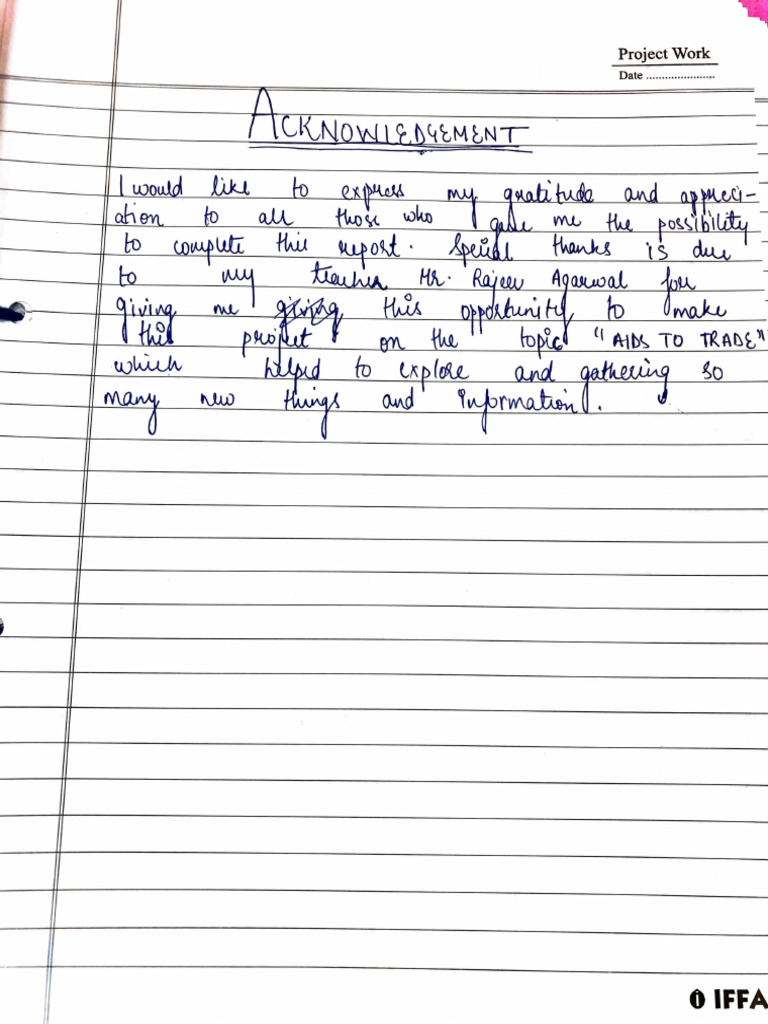 Project Work
Date ......................
ACKNOWLEDGEMENT
I would like to express my gratitude and appreci-
ation to all those who gave me the possibility
to complete this report. Special thanks is due
to my teacher Mr. Rajeev Agarwal for
giving me giving this opportunity to make
this project on the topic "AIDS TO TRADE"
which helped to explore and gathering so
many new things and information.
IFFA